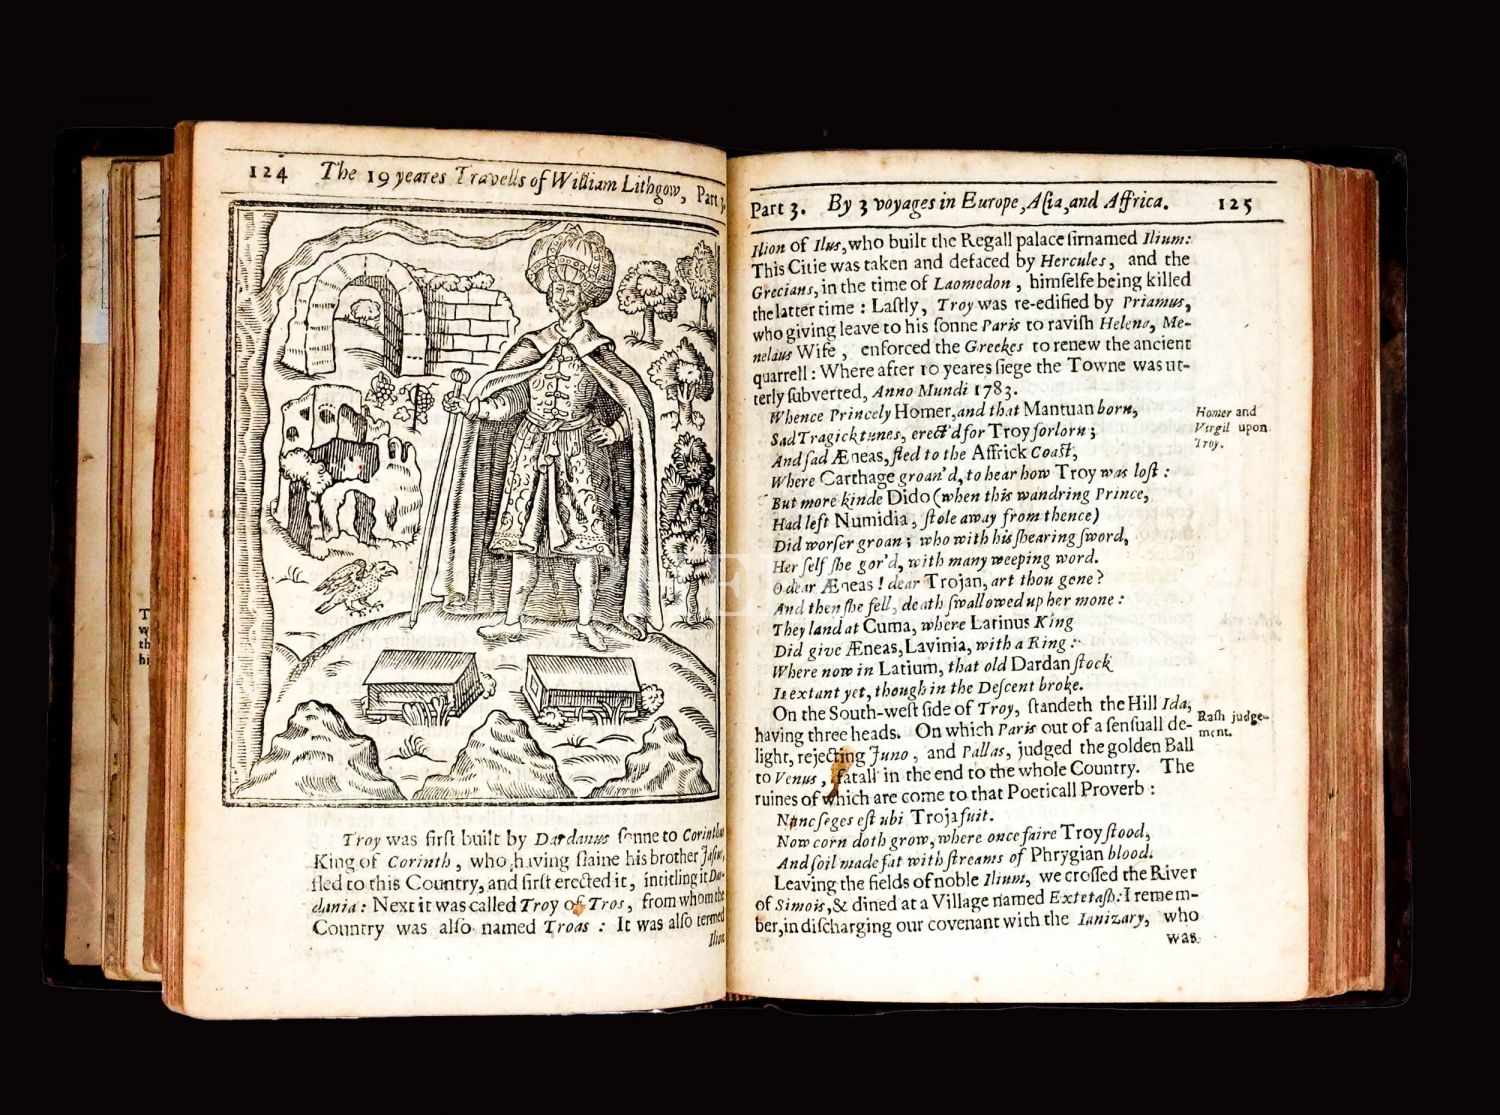 124 The 19 yeares Travells of William Lithgow, Part 3.
Troy was first built by Dardanus sonne to Corinthus
King of Corinth, who, having slaine his brother Jasius,
fled to this Country, and first erected it, intitling it Dar-
dania: Next it was called Troy of Tros, from whom the
Country was also named Troas: It was also termed
Ilion
Part 3. By 3 voyages in Europe, Asia, and Affrica. 125
Ilion of Ilus, who built the Regall palace sirnamed Ilium:
This Citie was taken and defaced by Hercules, and the
Grecians, in the time of Laomedon, himselfe being killed
the latter time: Lastly, Troy was re-edified by Priamus,
who giving leave to his sonne Paris to ravish Helena, Me-
nelaus Wife, enforced the Greekes to renew the ancient
quarrell: Where after 10 yeares siege the Towne was ut-
terly subverted, Anno Mundi 1783.
Whence Princely Homer, and that Mantuan born,
Sad Tragick tunes, erect'd for Troy forlorn;
And sad Æneas, fled to the Affrick Coast,
Where Carthage groan'd, to hear how Troy was lost:
But more kinde Dido (when this wandring Prince,
Had left Numidia, stole away from thence)
Did worser groan; who with his shearing sword,
Her self she gor'd, with many weeping word.
O dear Æneas! dear Trojan, art thou gone?
And then she fell, death swallowed up her mone:
They land at Cuma, where Latinus King
Did give Æneas, Lavinia, with a Ring:
Where now in Latium, that old Dardan stock
Is extant yet, though in the Descent broke.
Homer and
Virgil upon
Troy.
On the South-west side of Troy, standeth the Hill Ida,
having three heads. On which Paris out of a sensuall de-
light, rejecting Juno, and Pallas, judged the golden Ball
to Venus, fatall in the end to the whole Country. The
ruines of which are come to that Poeticall Proverb:
Rash judge-
ment.
Nunc seges est ubi Troja fuit.
Now corn doth grow, where once faire Troy stood,
And soil made fat with streams of Phrygian blood.
Leaving the fields of noble Ilium, we crossed the River
of Simois, & dined at a Village named Extetash: I remem-
ber, in discharging our covenant with the Ianizary, who
was